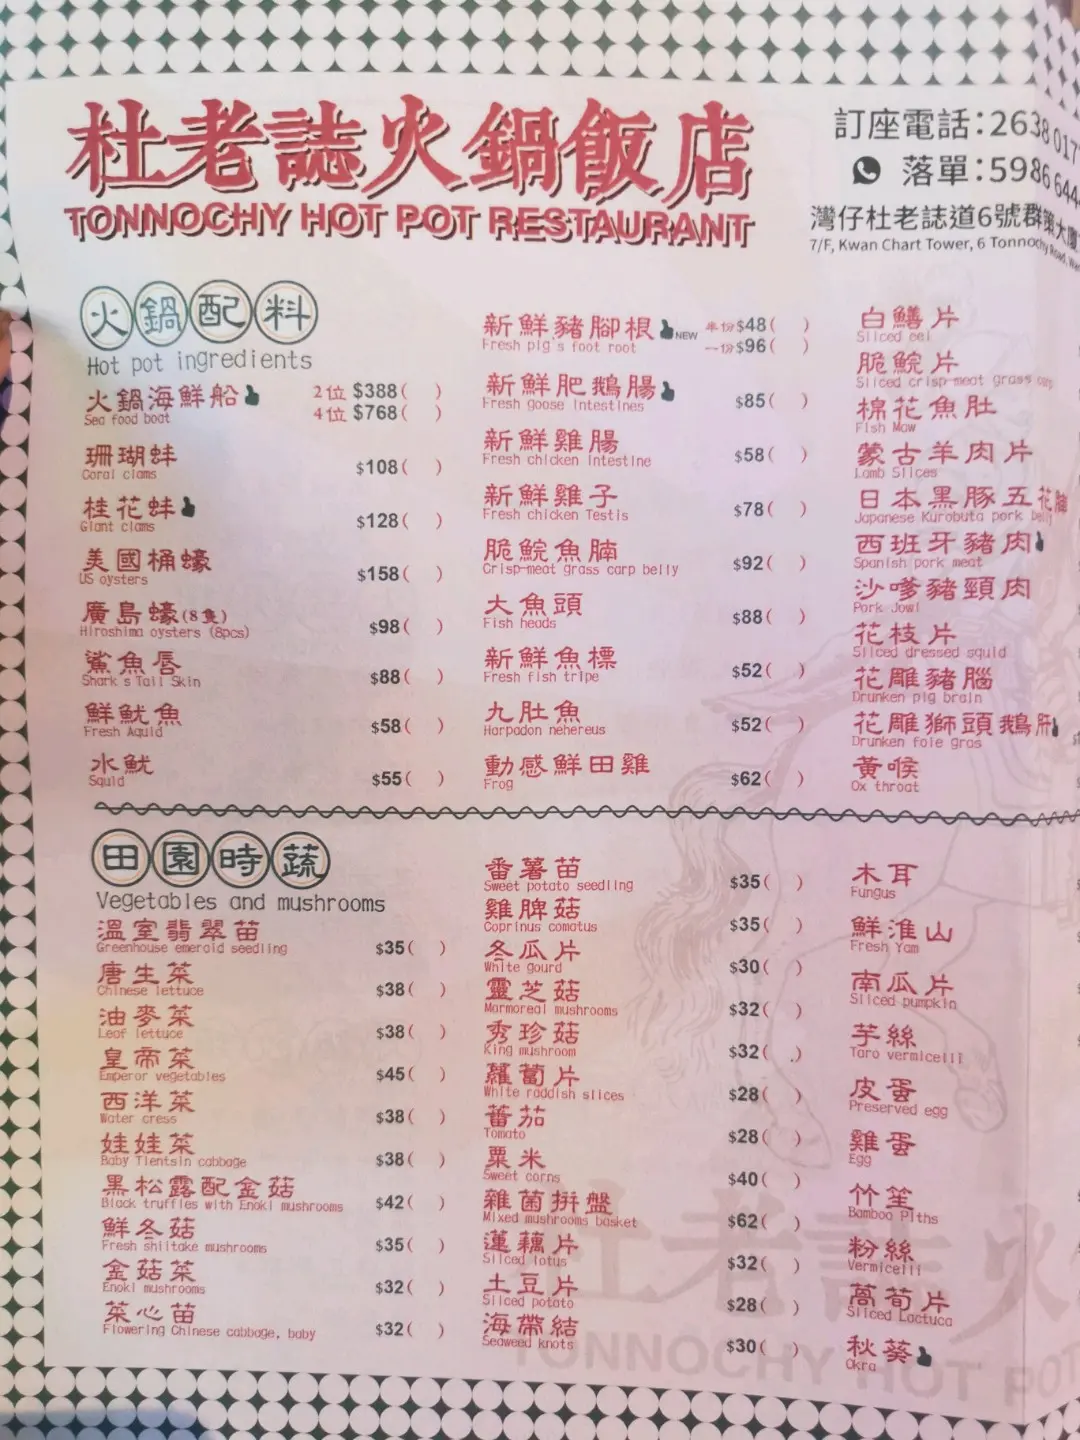 杜老誌火鍋飯店
TONNOCHY HOT POT RESTAURANT
訂座電話:2638 017
落單:5986 644
灣仔杜老誌道6號群策大廈
7/F, Kwan Chart Tower, 6 Tonnochy Road, Wan
火鍋配料
Hot pot ingredients
火鍋海鮮船 2位 $388( )
Sea food boat 4位 $768( )
珊瑚蚌
Coral clams $108( )
桂花蚌
Giant clams $128( )
美國桶蠔
US oysters $158( )
廣島蠔(8隻)
Hiroshima oysters (8pcs) $98( )
鯊魚唇
Shark s Tail Skin $88( )
鮮魷魚
Fresh Aquid $58( )
水魷
Squid $55( )
新鮮豬腳根 NEW 半份$48( )
Fresh pig's foot root 一份$96( )
新鮮肥鵝腸
Fresh goose intestines $85( )
新鮮雞腸
Fresh chicken intestine $58( )
新鮮雞子
Fresh chicken Testis $78( )
脆鯇魚腩
Crisp-meat grass carp belly $92( )
大魚頭
Fish heads $88( )
新鮮魚標
Fresh fish tripe $52( )
九肚魚
Harpadon nehereus $52( )
動感鮮田雞
Frog $62( )
白鱔片
Sliced eel
脆鯇片
Sliced crisp-meat grass carp
棉花魚肚
Fish Maw
蒙古羊肉片
Lamb Slices
日本黑豚五花腩
Japanese Kurobuta pork belly
西班牙豬肉
Spanish pork meat
沙嗲豬頸肉
Pork Jowl
花枝片
Sliced dressed squid
花雕豬腦
Drunken pig brain
花雕獅頭鵝肝
Drunken foie gras
黃喉
Ox throat
田園時蔬
Vegetables and mushrooms
溫室翡翠苗
Greenhouse emerald seedling $35( )
唐生菜
Chinese lettuce $38( )
油麥菜
Leaf lettuce $38( )
皇帝菜
Emperor vegetables $45( )
西洋菜
Water cress $38( )
娃娃菜
Baby Tientsin cabbage $38( )
黑松露配金菇
Black truffles with Enoki mushrooms $42( )
鮮冬菇
Fresh shiitake mushrooms $35( )
金菇菜
Enoki mushrooms $32( )
菜心苗
Flowering Chinese cabbage, baby $32( )
番薯苗
Sweet potato seedling $35( )
雞脾菇
Coprinus comatus $35( )
冬瓜片
White gourd $30( )
靈芝菇
Marmoreal mushrooms $32( )
秀珍菇
King mushroom $32( )
蘿蔔片
White raddish slices $28( )
蕃茄
Tomato $28( )
粟米
Sweet corns $40( )
雜菌拼盤
Mixed mushrooms basket $62( )
蓮藕片
Sliced lotus $32( )
土豆片
Sliced potato $28( )
海帶結
Seaweed knots $30( )
木耳
Fungus
鮮淮山
Fresh Yam
南瓜片
Sliced pumpkin
芋絲
Taro vermicelli
皮蛋
Preserved egg
雞蛋
Egg
竹笙
Bamboo Piths
粉絲
Vermicelli
萵筍片
Sliced Lactuca
秋葵
Okra
杜老誌火
TONNOCHY HOT POT